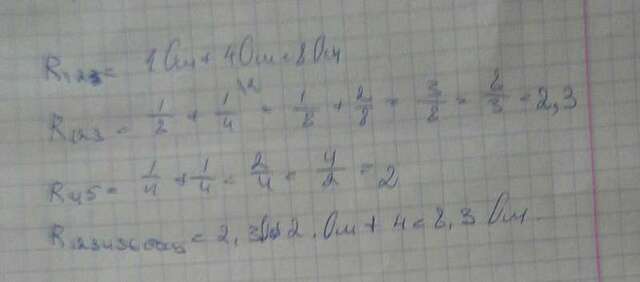 R₁₂₃ = 4 Ом + 4 Ом = 8 Ом
R₁₂₃ = 1/8 + 1/4 \2 = 1/8 + 2/8 = 3/8 = 8/3 = 2,3
R₄₅ = 1/4 + 1/4 = 2/4 = 4/2 = 2
= 2,3 2 Ом + 4 = 8,3 Ом